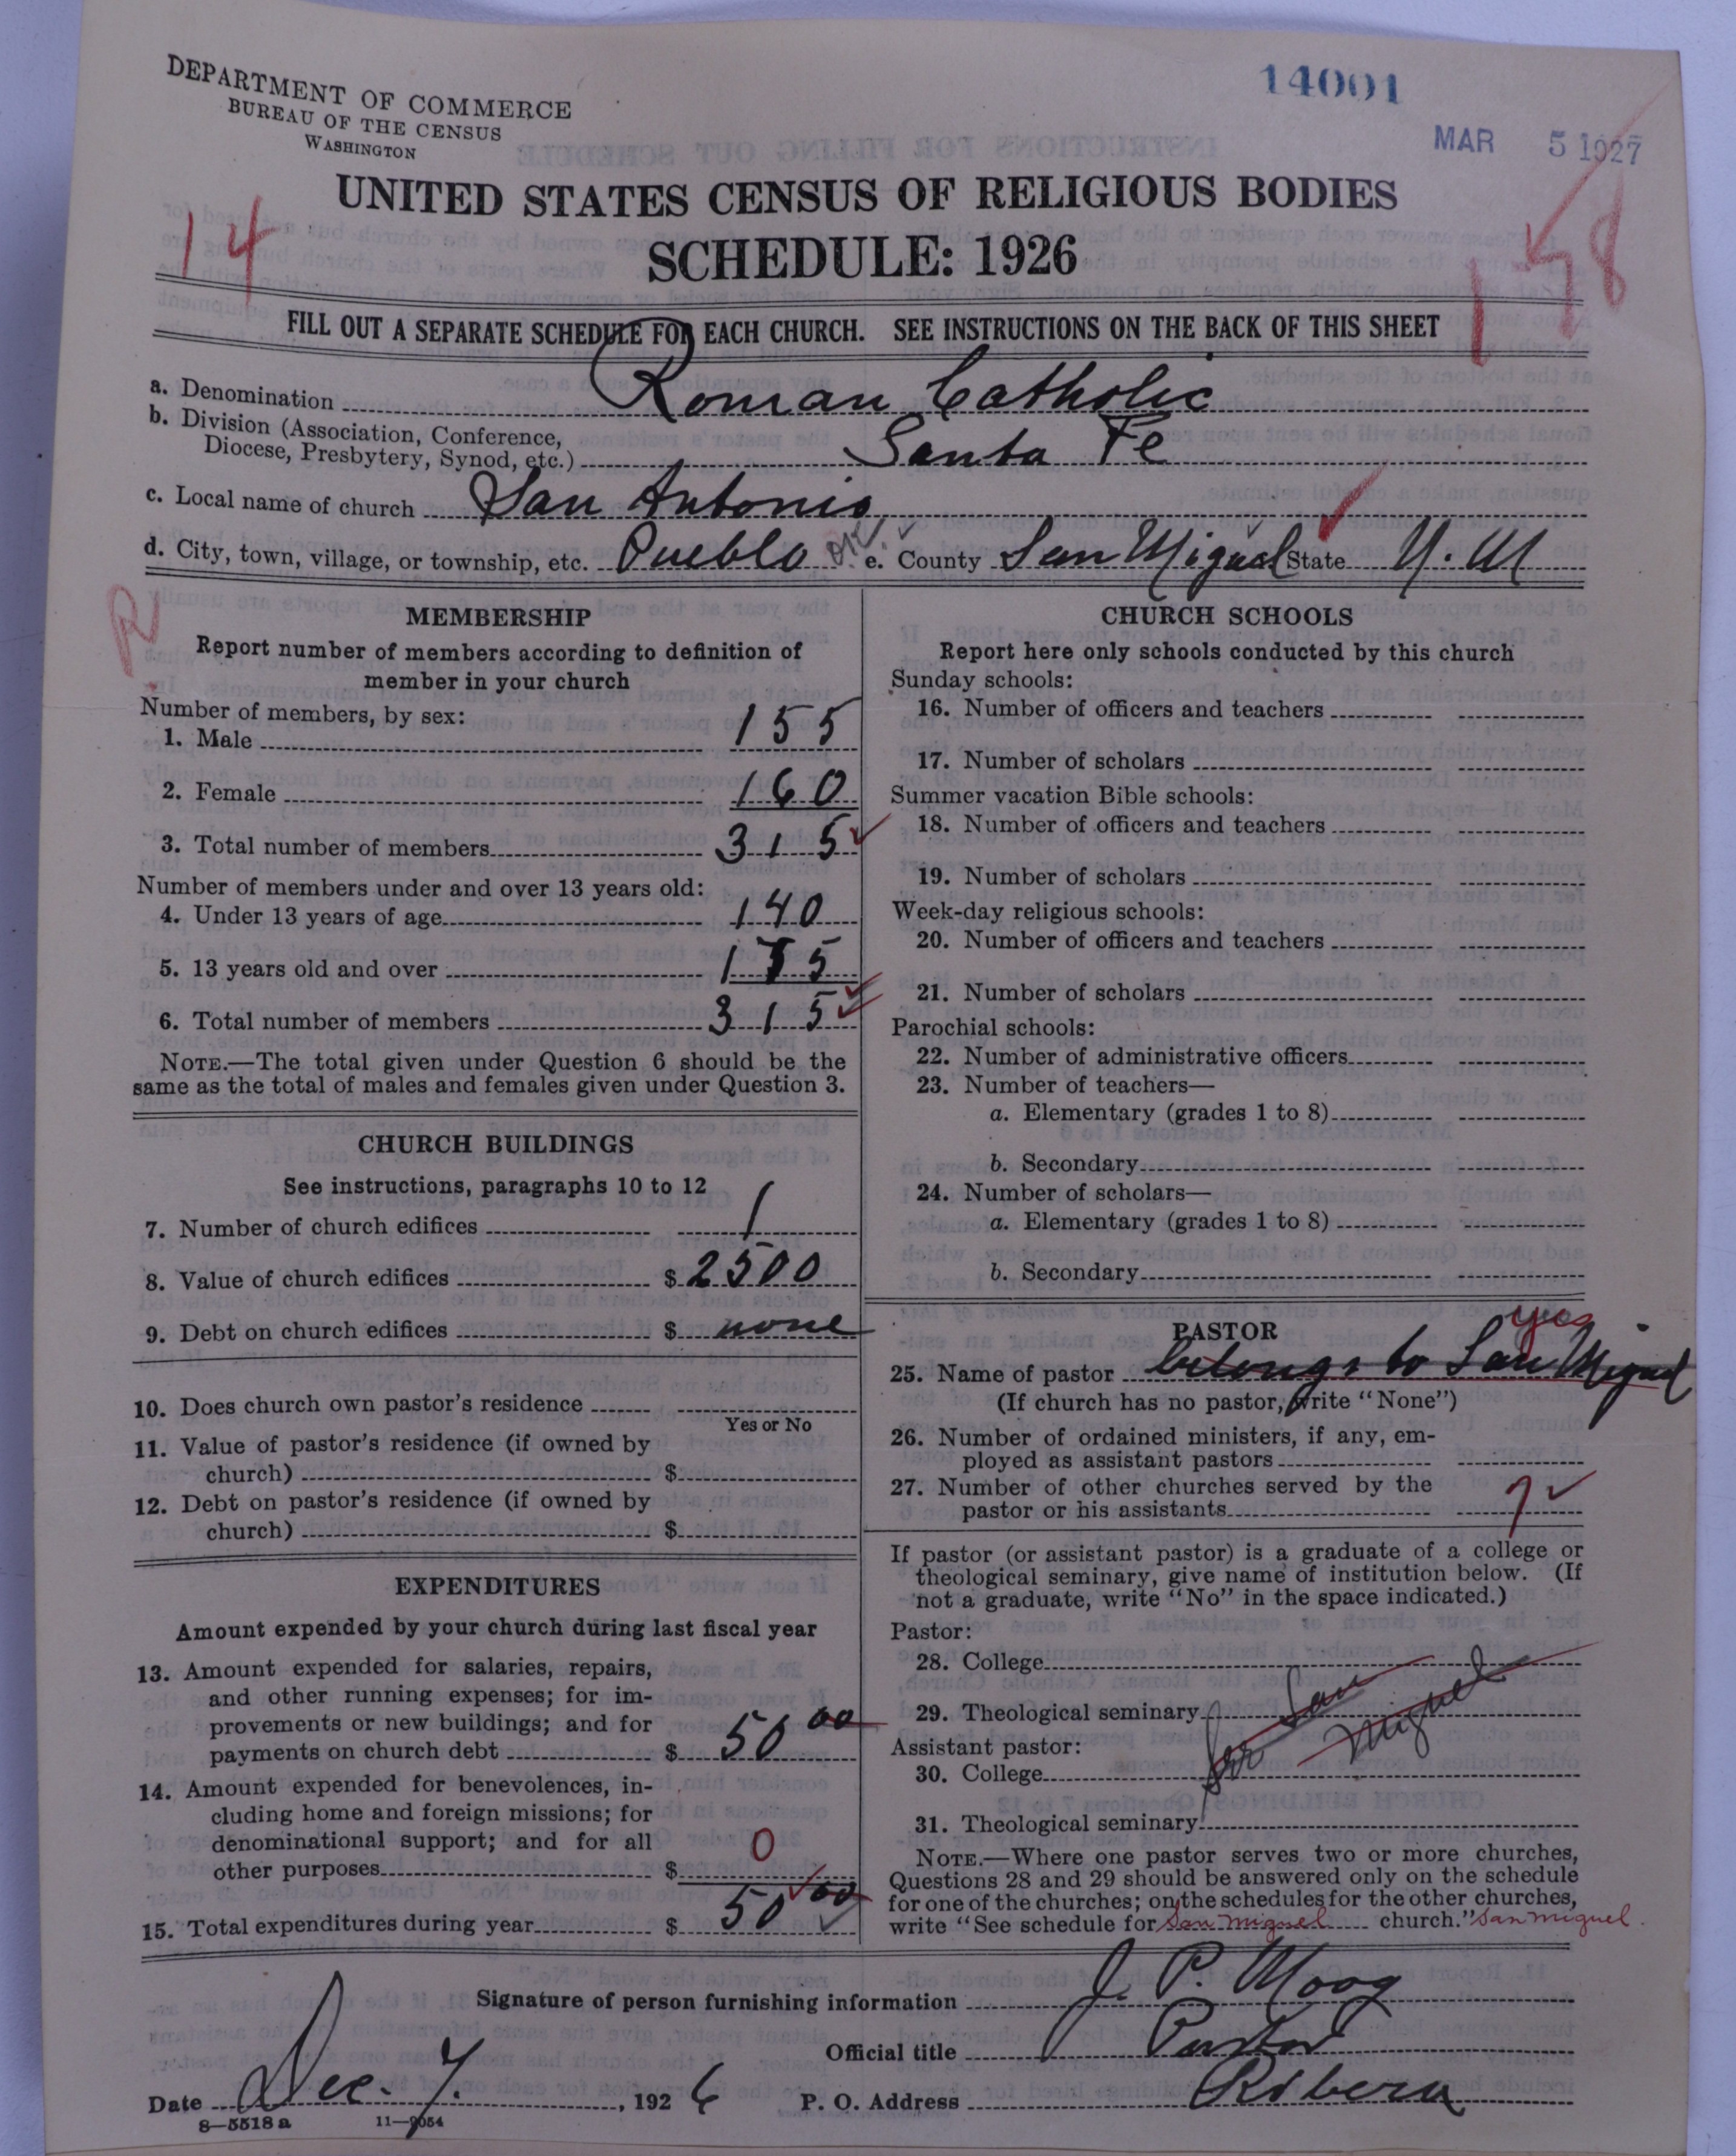 DEPARTMENT OF COMMERCE
BUREAU OF THE CENSUS
WASHINGTON
14001
MAR 5 1927
UNITED STATES CENSUS OF RELIGIOUS BODIES
SCHEDULE: 1926
14
158
FILL OUT A SEPARATE SCHEDULE FOR EACH CHURCH. SEE INSTRUCTIONS ON THE BACK OF THIS SHEET
a. Denomination Roman Catholic
b. Division (Association, Conference,
Diocese, Presbytery, Synod, etc.) Santa Fe
c. Local name of church San Antonio
d. City, town, village, or township, etc. Pueblo OK. e. County San Miguel State N. M
R
MEMBERSHIP
Report number of members according to definition of
member in your church
Number of members, by sex:
1. Male 155
2. Female 160
3. Total number of members 315
Number of members under and over 13 years old:
4. Under 13 years of age 140
5. 13 years old and over 175
6. Total number of members 315
NOTE.—The total given under Question 6 should be the
same as the total of males and females given under Question 3.
CHURCH BUILDINGS
See instructions, paragraphs 10 to 12
7. Number of church edifices 1
8. Value of church edifices $ 2500
9. Debt on church edifices $ none
10. Does church own pastor's residence
Yes or No
11. Value of pastor's residence (if owned by
church) $
12. Debt on pastor's residence (if owned by
church) $
EXPENDITURES
Amount expended by your church during last fiscal year
13. Amount expended for salaries, repairs,
and other running expenses; for im-
provements or new buildings; and for
payments on church debt $ 50 00
14. Amount expended for benevolences, in-
cluding home and foreign missions; for
denominational support; and for all
other purposes $ 0
15. Total expenditures during year $ 50 00
CHURCH SCHOOLS
Report here only schools conducted by this church
Sunday schools:
16. Number of officers and teachers
17. Number of scholars
Summer vacation Bible schools:
18. Number of officers and teachers
19. Number of scholars
Week-day religious schools:
20. Number of officers and teachers
21. Number of scholars
Parochial schools:
22. Number of administrative officers
23. Number of teachers—
a. Elementary (grades 1 to 8)
b. Secondary
24. Number of scholars—
a. Elementary (grades 1 to 8)
b. Secondary
PASTOR
yes
25. Name of pastor belongs to San Miguel
(If church has no pastor, write "None")
26. Number of ordained ministers, if any, em-
ployed as assistant pastors
27. Number of other churches served by the
pastor or his assistants 7
If pastor (or assistant pastor) is a graduate of a college or
theological seminary, give name of institution below. (If
not a graduate, write "No" in the space indicated.)
Pastor:
28. College
29. Theological seminary
for San Miguel
Assistant pastor:
30. College
31. Theological seminary
NOTE.—Where one pastor serves two or more churches,
Questions 28 and 29 should be answered only on the schedule
for one of the churches; on the schedules for the other churches,
write "See schedule for San Miguel church." San Miguel.
Signature of person furnishing information J. P. Moog
Official title Pastor
Date Dec. 7. , 1926 P. O. Address Ribera
8—5518 a 11—9054